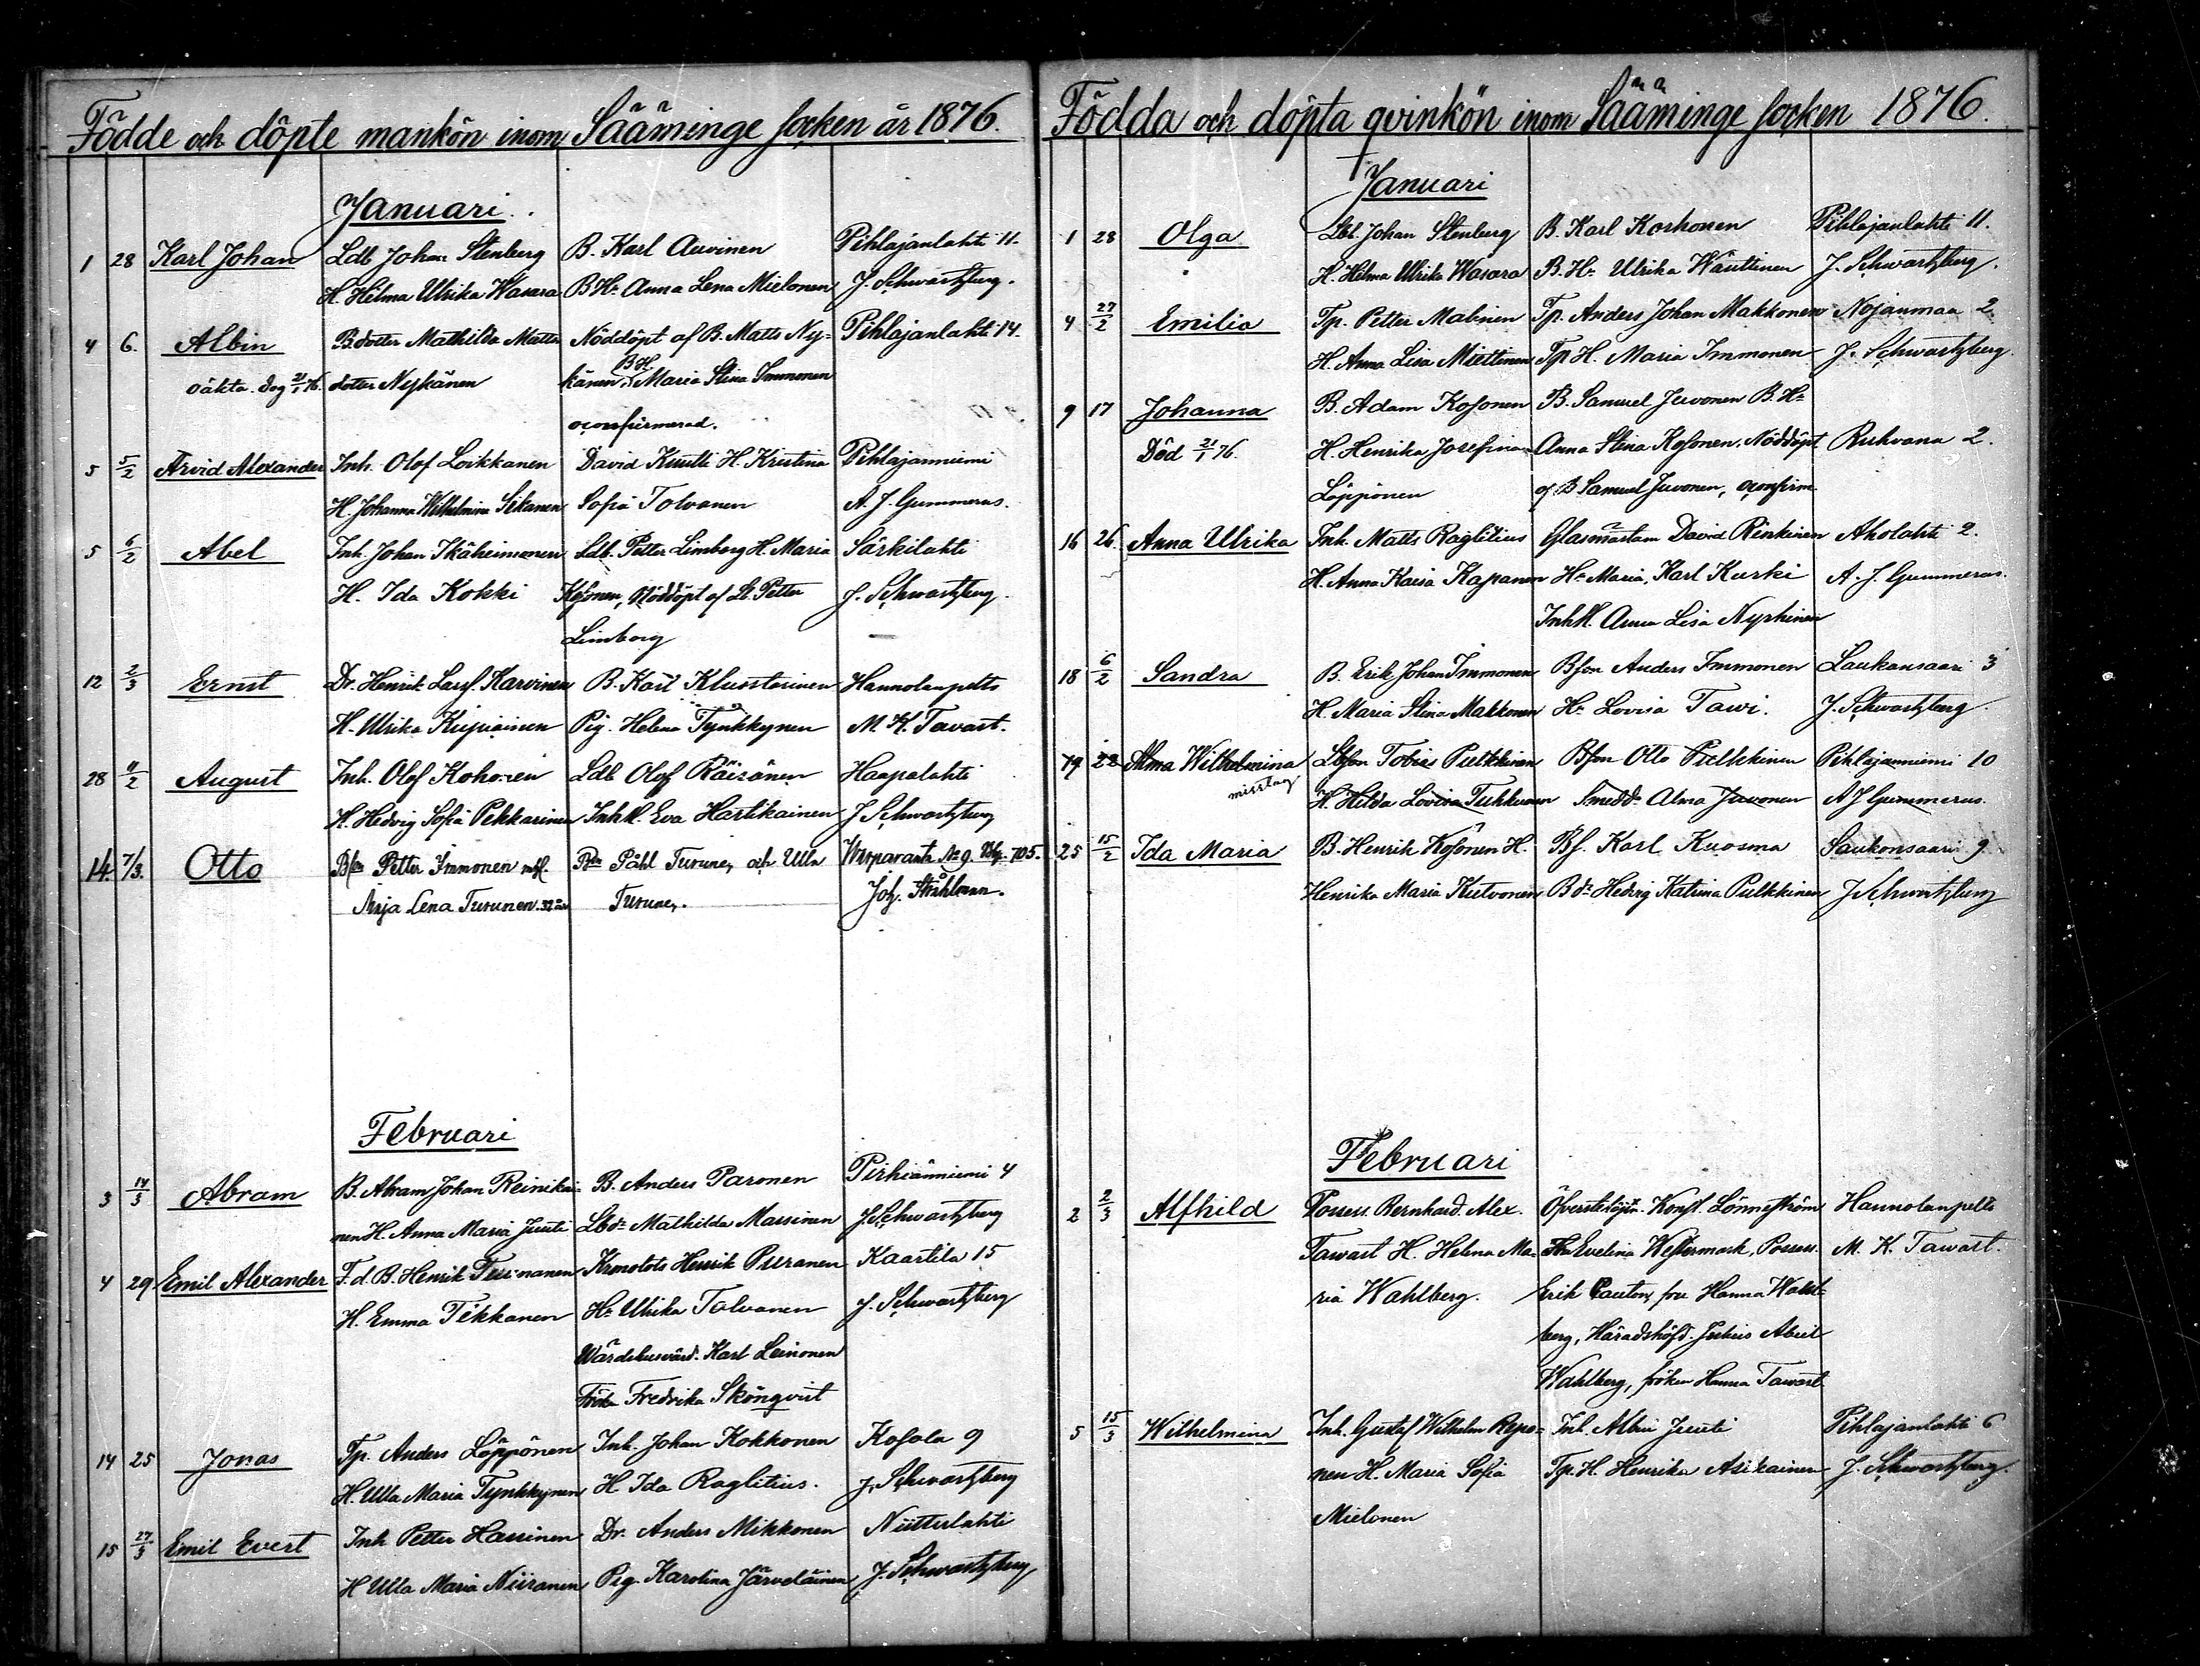 Födde och döpte mankön inom Sääminge socken år 1876.
Januari.
1 28 Karl Johan Ldb Johan Stenberg B. Karl Auvinen Pihlajanlahti 11.
H. Helma Ulrika Wasara B. Hu Anna Lena Mielonen J. Schwartzberg.
4 6. Albin B. dotter Mathilda Matts Nöddöpt af B. Matts Ny- Pihlajanlahti 14.
oäkta. dog 21/1 76. dotter Nykänen känen BH Maria Stina Immonen
oconfirmerad.
5 5/2 Arvid Alexander Inh. Olof Loikkanen David Kuutti H. Kristina Pihlajaniemi
H. Johanna Wilhelmina Sikanen Sofia Tolvanen A. J. Gummerus.
5 6/2 Abel Inh. Johan Ikäheimonen Ldb. Petter Limberg H. Maria Särkilahti
H. Ida Kokki Kosonen, Nöddöpt af Lb. Petter J. Schwartzberg.
Limberg
12 2/3 Ernst Dr. Henrik Karvinen B. Karl Hannolanpelto
H. Ulrika Kupiainen Pig. Helena Tynkkynen M. K. Tavast.
28 11/2 August Inh. Olof Kohonen Ldb Olof Räisänen Haapalahti
H. Hedvig Sofia Pekkarinen Inh H. Eva Hartikainen J Schwartzberg
14. 7/3. Otto Bson Petter Immonen Bson Påhl Turunen och Ulla Warparanta No 9. 705.
Lena Turunen 32 år Turunen. Joh. Ståhlman.
Februari
3 14/3 Abram B. Abram Johan Reinikai- B. Anders Paronen Pirhiänniemi 4
nen H. Anna Maria Juuti Lbdr Mathilda Massinen J Schwartzberg
4 29 Emil Alexander F. d. B. Henrik Henrik Puranen Kaartila 15
H. Emma Tikkanen Hu Ulrika Tolvanen J. Schwartzberg
Wärdshusvärd. Karl Leinonen
Fredrika Skönqvist
14 25 Jonas Tp. Anders Löppönen Inh. Johan Kokkonen Kosola 9
H. Ulla Maria Tynkkynen H Ida Raglitius. J. Schwartzberg
15 27/3 Emil Evert Inh Petter Hassinen Dr. Anders Mikkonen Niitterlahti
H Ulla Maria Niiranen Pig. Karolina Järveläinen J. Schwartzberg
Födda och döpta qvinkön inom Sääminge socken 1876.
Januari
1 28 Olga Lbl. Johan Stenberg B. Karl Korhonen Pihlajanlahti 11.
H. Helma Ulrika Wasara B. Hu Ulrika Wäuttinen J. Schwartzberg.
4 27/2 Emilia Tp. Petter Malinen Tp. Anders Johan Makkonen Nojanmaa 2
H. Anna Lisa Miettinen Tp H. Maria Immonen J. Schwartzberg.
9 17 Johanna B. Adam Kosonen B. Samuel Juvonen B. Hu
Död 21/1 76. H. Henrika Josefina Anna Stina Kosonen. Nöddöpt Ruhvana 2.
Löppönen af B Samuel Juvonen, oconfirm
16 26. Anna Ulrika Inh. Matts Raglitius Glasmästam David Rinkinen Aholahti 2.
H. Anna Kaisa Kapanen Hu Maria, Karl Kurki A. J. Gummerus.
Inh H. Anna Lisa Nyrhinen
18 6/2 Sandra B. Erik Johan Immonen Bson Anders Immonen Laukansaari 3
H. Maria Stina Makkonen Hu Lovisa Tawi. J. Schwartzberg.
19 22 Alma Wilhelmina Lbson Tobias Pulkkinen Bson Otto Pulkkinen Pihlajaniemi 10
misstag H. Hilda Lovisa Tuhkunen Smedd. Alma Juvonen A J Gummerus.
25 15/2 Ida Maria B. Henrik Kosonen H. Bs. Karl Kuosma Laukonsaari 9
Henrika Maria Kutvonen B dr Hedvig Katrina Pulkkinen J Schwartzberg
Februari
2 2/3 Alfhild Possess. Bernhard. Alex. Öfverstelöjtn. Konst. Lönnström Hannolanpelto
Tawast H. Helena Ma- Evelina Westermark, Possess. M. K. Tawast.
ria Wahlberg. Erik fru Hanna Wahl-
berg, Häradshöfd. Julius Abiel
Wahlberg, fröken Hanna Tawast
5 15/3 Wilhelmina Inh. Gustaf Wilhelm Repo- Inh. Albin Juuti Pihlajanlahti 6
nen H. Maria Sofia Tp. H. Henrika Asikainen J. Schwartzberg.
Mielonen